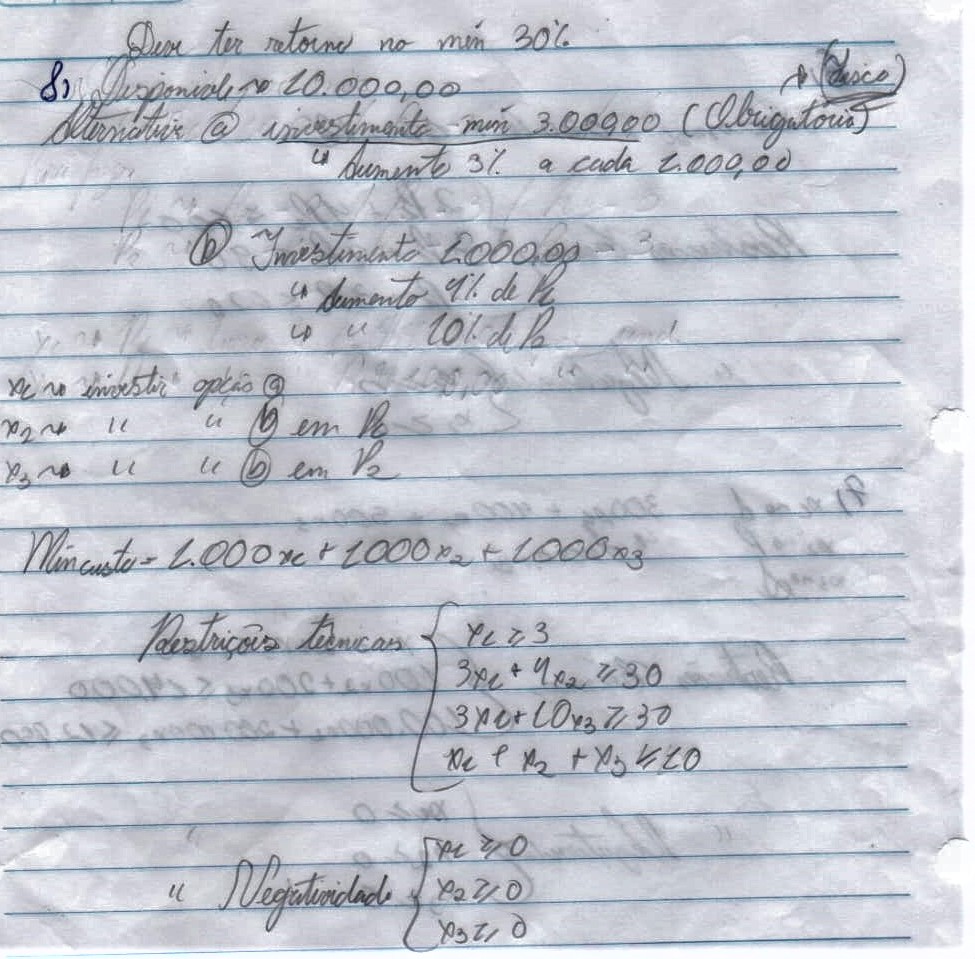 Deve ter retorno no mín 30%
8) Disponível → 10.000,00 → (disco)
Alternativa (a) investimento mín 3.000,00 (Obrigatório)
↳ Aumento 3% a cada 1.000,00
(b) Investimento 1.000,00
↳ Aumento 4% de P1
↳ " 10% de P2
x1 → investir opção (a)
x2 → " " (b) em P1
x3 → " " (b) em P2
Mín custo = 1.000x1 + 1000x2 + 1000x3
Restrições técnicas { x1 ≥ 3
3x1 + 4x2 ≥ 30
3x1 + 10x3 ≥ 30
x1 + x2 + x3 ≤ 10
" Negatividade { x1 ≥ 0
x2 ≥ 0
x3 ≥ 0